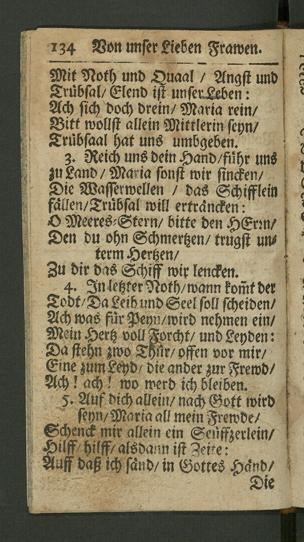 134 Von unser Lieben Frawen.
Mit Noth und Quaal / Angst und
Trübsal / Elend ist unser Leben:
Ach sich doch drein / Maria rein /
Bitt wollst allein Mittlerin seyn /
Trübsaal hat uns umbgeben.
3. Reich uns dein Hand / führ uns
zu Land / Maria sonst wir sincken /
Die Wasserwellen / das Schifflein
fällen / Trübsal will erträncken:
O Meeres-Stern / bitte den HErrn /
Den du ohn Schmertzen / trugst un-
term Hertzen /
Zu dir das Schiff wir lencken.
4. In letzter Noth / wann kom̃t der
Todt / Da Leib und Seel soll scheiden /
Ach was für Peyn / wird nehmen ein /
Mein Hertz voll Forcht / und Leyden:
Da stehn zwo Thür / offen vor mir /
Eine zum Leyd / die ander zur Frewd /
Ach! ach! wo werd ich bleiben.
5. Auf dich allein / nach Gott wird
seyn / Maria all mein Frewde /
Schenck mir allein ein Seuffzerlein /
Hilff / hilff / alsdann ist Zeite:
Auff daß ich sänd / in Gottes Händ /
Die